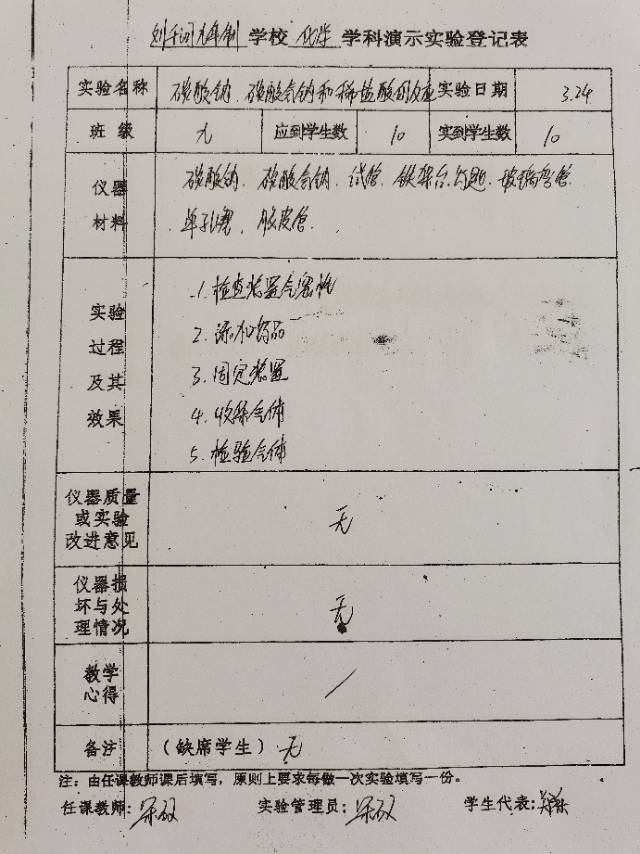 学校 化学 学科演示实验登记表
实验名称 碳酸钠、碳酸氢钠和稀盐酸的反应 实验日期 3.24
班级 九 应到学生数 10 实到学生数 10
仪器材料 碳酸钠、碳酸氢钠、试管、铁架台、玻璃导管
单孔塞、胶皮管
实验过程及其效果
1.检查装置气密性
2.添加药品
3.固定装置
4.收集气体
5.检验气体
仪器质量或实验改进意见 无
仪器损坏与处理情况 无
教学心得 /
备注 (缺席学生) 无
注:由任课教师课后填写,原则上要求每做一次实验填写一份。
任课教师: 实验管理员: 学生代表: